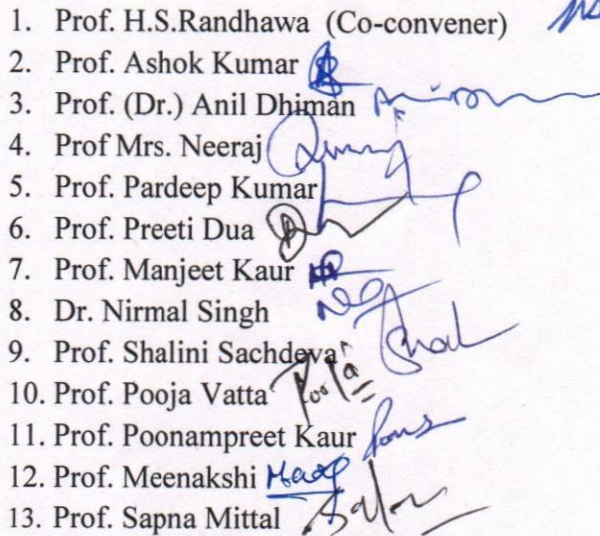 1. Prof. H.S.Randhawa (Co-convener)
2. Prof. Ashok Kumar
3. Prof. (Dr.) Anil Dhiman
4. Prof Mrs. Neeraj
5. Prof. Pardeep Kumar
6. Prof. Preeti Dua
7. Prof. Manjeet Kaur
8. Dr. Nirmal Singh
9. Prof. Shalini Sachdeva
10. Prof. Pooja Vatta Pooja
11. Prof. Poonampreet Kaur
12. Prof. Meenakshi
13. Prof. Sapna Mittal